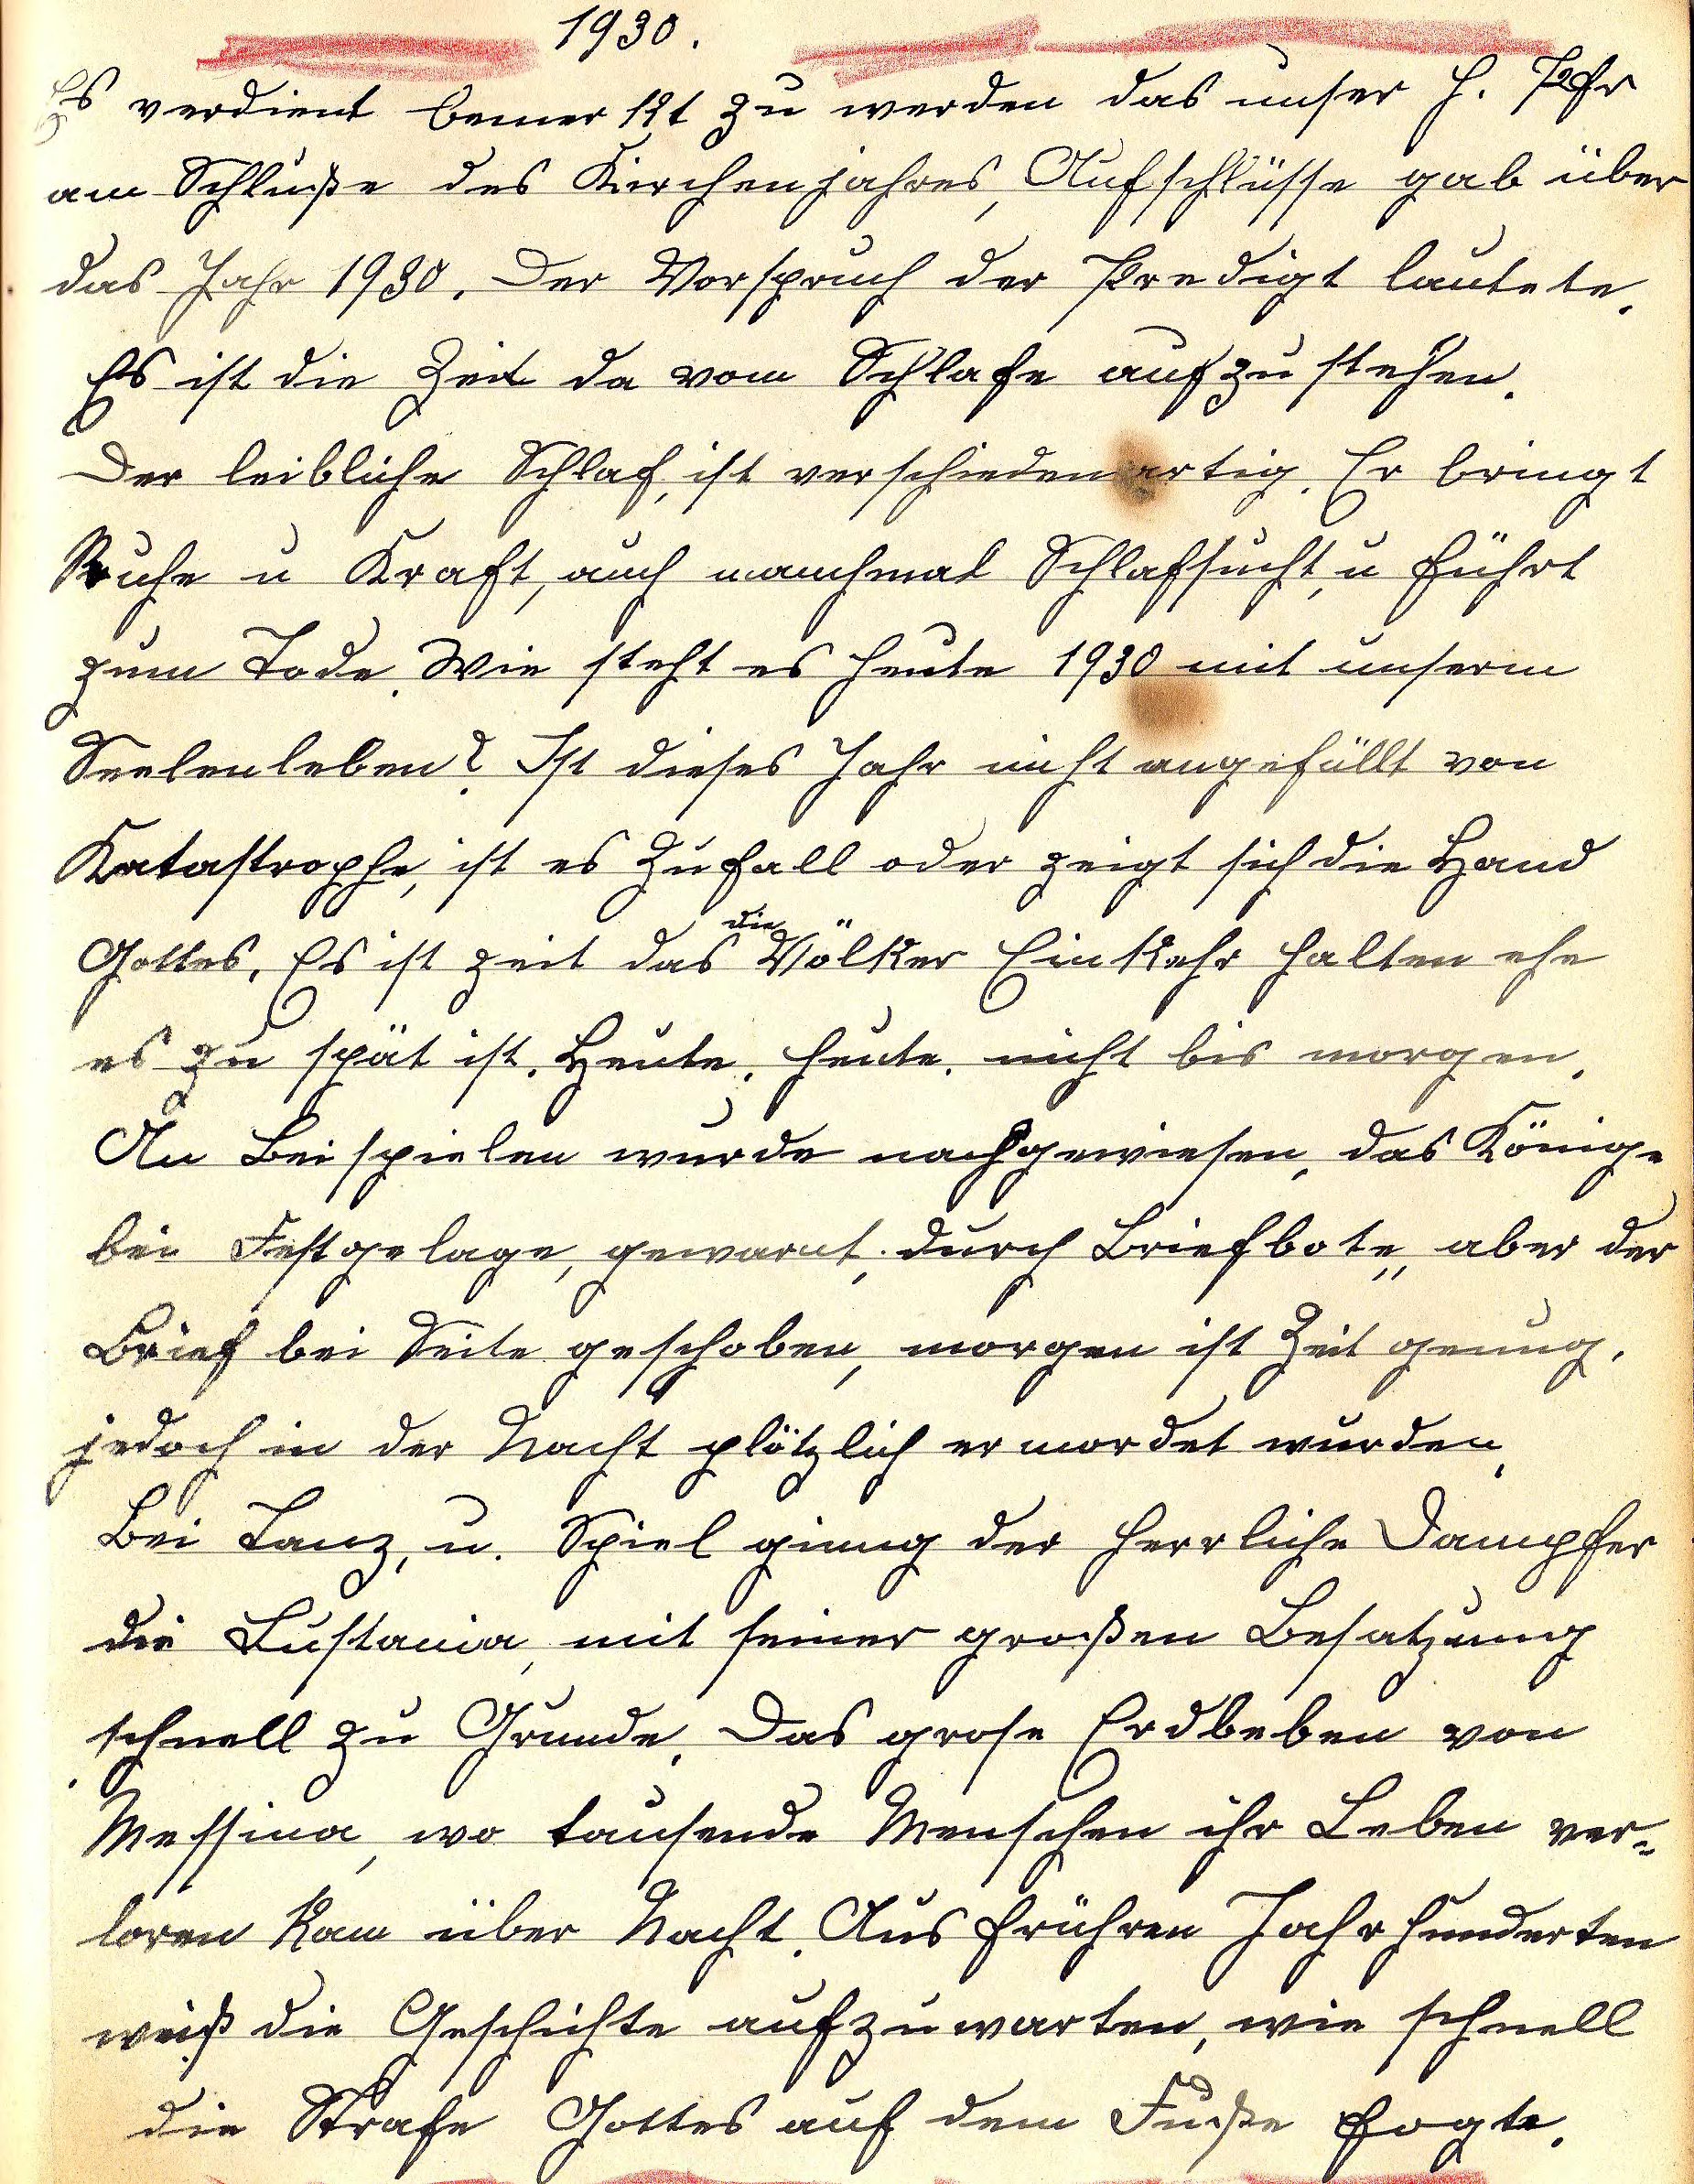 1930.
Es verdient bemerkt zu werden das unser H. Pfr
am Schluße des Kirchenjahres, Aufschlüsse gab über
das Jahr 1930. Der Vorspruch der Predigt lautete.
Es ist die Zeit da vom Schlafe aufzustehen.
Der leibliche Schlaf, ist verschiedenartig. Er bringt
Ruhe u Kraft, auch manchmal Schlafsucht, u führt
zum Tode. Wie steht es heute 1930 mit unserm
Seelenleben? Ist dieses Jahr nicht angefüllt von
Katastrophe, ist es Zufall oder zeigt sich die Hand
Gottes. Es ist zeit das die Völker Einkehr halten ehe
es zu spät ist. Heute, heute, nicht bis morgen.
An Beispielen wurde nachgewiesen, das Könige
bei Festgelage, gewarnt, durch Briefbote,, aber der
Brief bei Seite geschoben, morgen ist Zeit genug.
jedoch in der Nacht plötzlich ermordet wurden.
Bei Tanz, u. Spiel ginng der herrliche Dampfer
die Lustania, mit seiner großen Besatzung
schnell zu Grunde. Das grose Erdbeben von
Messina, wo tausende Menschen ihr Leben ver-
loren kam über Nacht. Aus frühren Jahrhunderten
weiß die Geschichte aufzuwarten, wie schnell
die Strafe Gottes auf dem Fuße fogte.